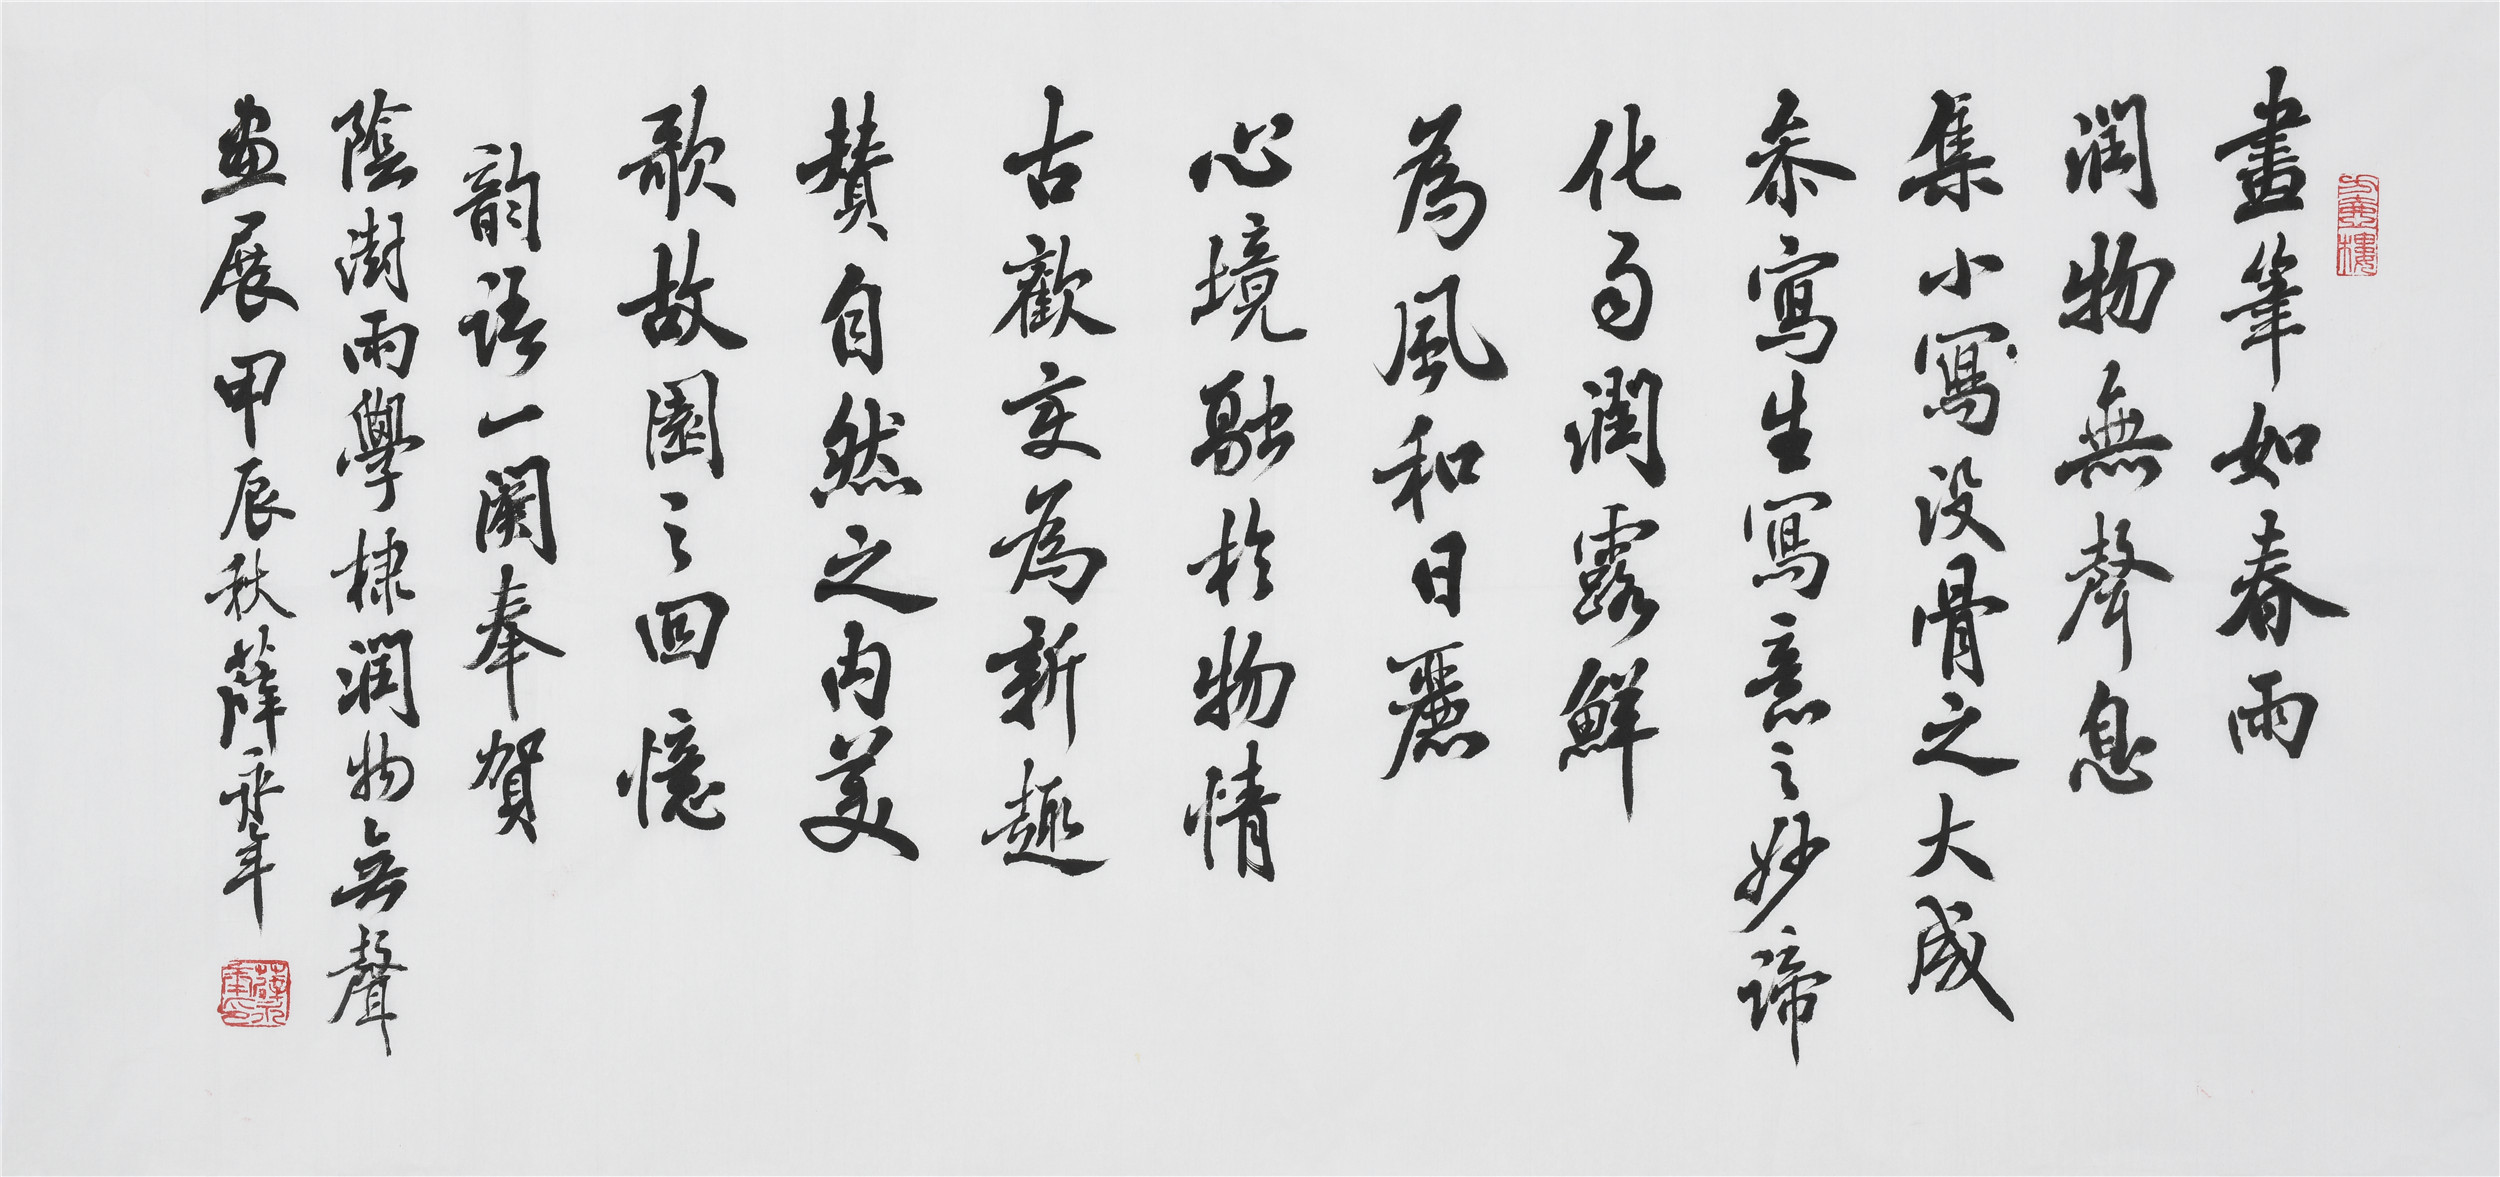 畫筆如春雨
润物無聲息
集小寫没骨之大成
叅寫生寫意之妙諦
化為潤露鮮
為風和日麗
心境融於物情
古歡变為新趣
赞自然之内美
歌故園之回憶
韵语一阕奉贺
陰澍雨學棣潤物無聲
画展甲辰秋薛永年